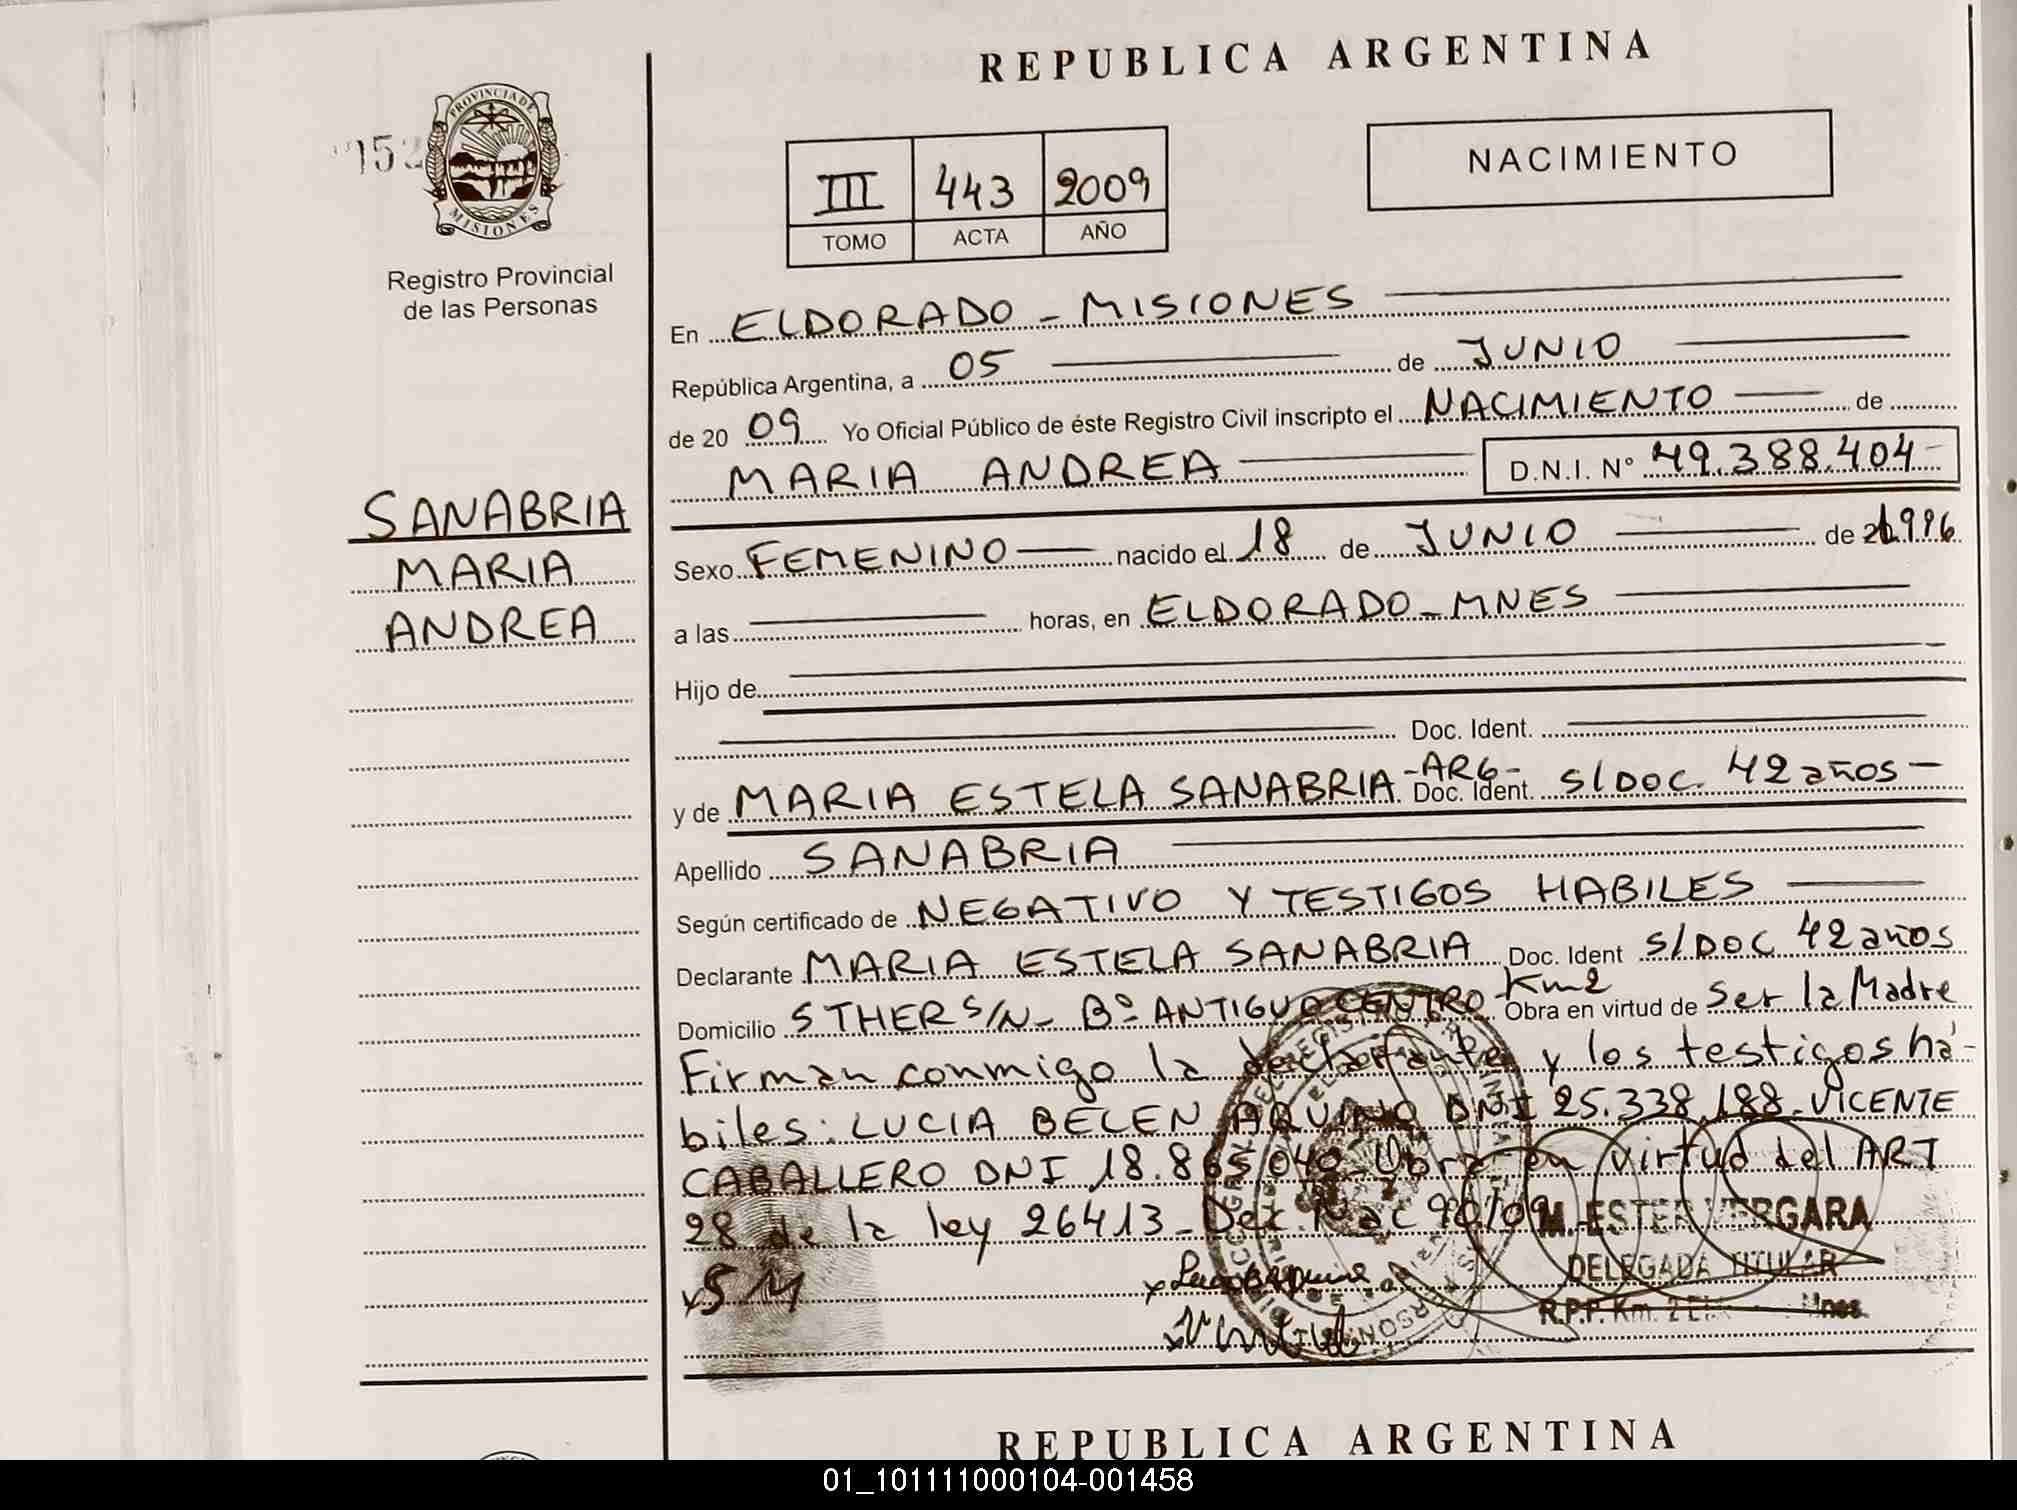 REPUBLICA ARGENTINA
PROVINCIA DE
MISIONES
Registro Provincial
de las Personas
III 443 2009
TOMO ACTA AÑO
NACIMIENTO
SANABRIA
MARIA
ANDREA
En ELDORADO - MISIONES
República Argentina, a 05 de JUNIO
de 20 09 Yo Oficial Público de éste Registro Civil inscripto el NACIMIENTO de
MARIA ANDREA D.N.I. Nº 49.388.404-
Sexo FEMENINO nacido el 18 de JUNIO de
a las horas, en ELDORADO - MNES
Hijo de
Doc. Ident.
y de MARIA ESTELA SANABRIA -ARG- Doc. Ident. S/DOC. 42 años -
Apellido SANABRIA
Según certificado de NEGATIVO Y TESTIGOS HABILES
Declarante MARIA ESTELA SANABRIA Doc. Ident S/DOC 42 años
Domicilio STHER S/N - Bº ANTIGUO CENTRO Km2 Obra en virtud de Ser la Madre
Firman conmigo la declarante y los testigos há-
biles: LUCIA BELEN AQUINO DNI 25.338.188. VICENTE
CABALLERO DNI 18.865.040. Obra en virtud del ART
28 de la ley 26413 - Dec. Nac 90/09
S M
M. ESTER VERGARA
DELEGADA TITULAR
R.P.P. Km. 2 Mnes.
REPUBLICA ARGENTINA
01_101111000104-001458